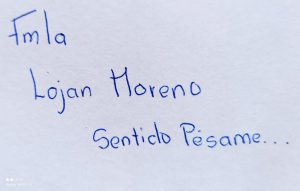 Fmla
Lojan Moreno
Sentido Pésame...